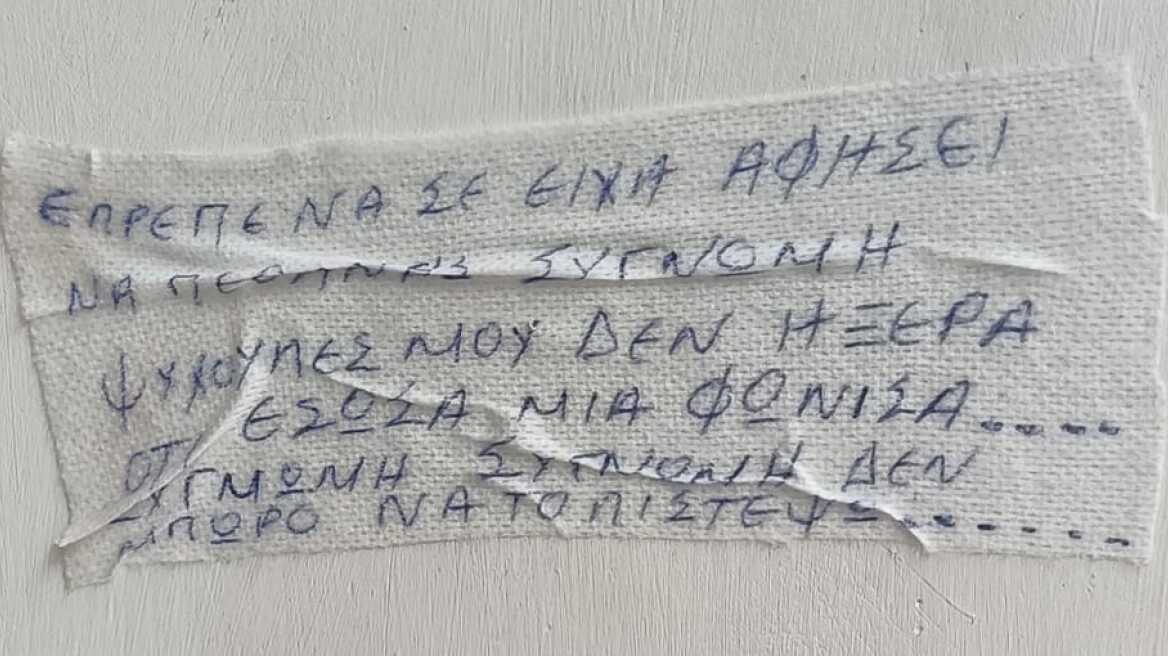 ΕΠΡΕΠΕ ΝΑ ΣΕ ΕΙΧΑ ΑΦΗΣΕΙ
ΝΑ ΠΕΘΑΝΕΙΣ ΣΥΓΝΩΜΗ
ΨΥΧΟΥΠΕΣ ΜΟΥ ΔΕΝ ΗΞΕΡΑ
ΟΤΙ ΕΣΩΣΑ ΜΙΑ ΦΩΝΙΣΑ.....
ΣΥΓΜΩΜΗ ΣΥΓΝΩΜΗ ΔΕΝ
ΜΠΩΡΟ ΝΑ ΤΟ ΠΙΣΤΕΨΩ.......